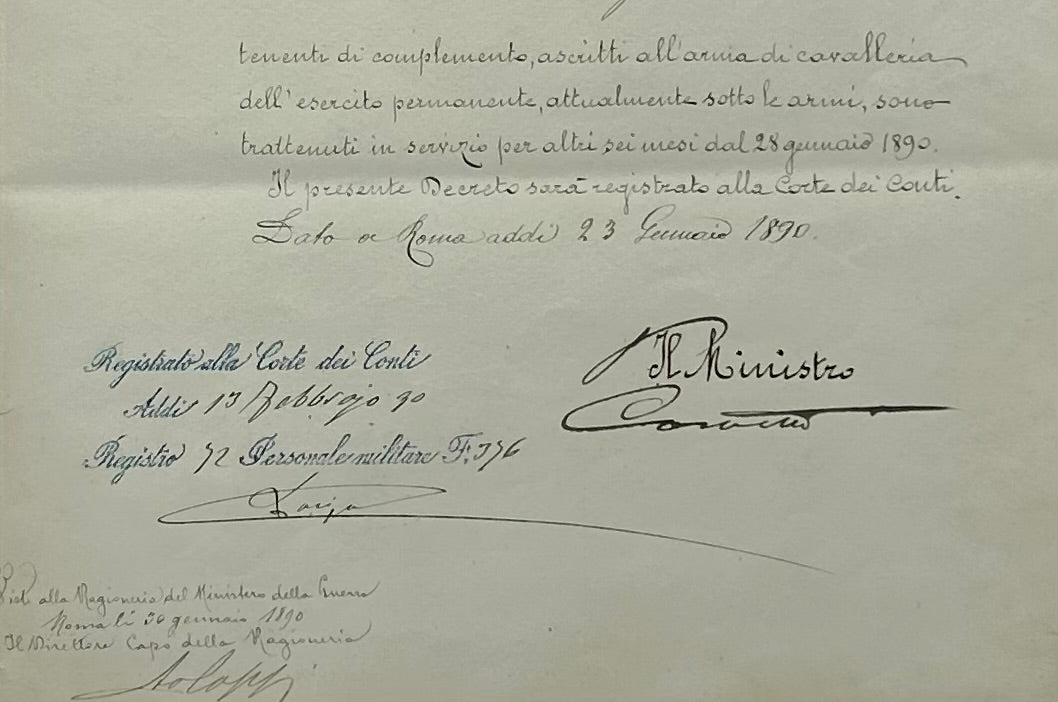 tenenti di complemento, ascritti all'arma di cavalleria
dell'esercito permanente, attualmente sotto le armi, sono
trattenuti in servizio per altri sei mesi dal 28 gennaio 1890.
Il presente Decreto sarà registrato alla Corte dei Conti.
Dato a Roma addì 23 Gennaio 1890.
Il Ministro
Registrato alla Corte dei Conti
Addì 13 Febbrajo 90
Registro 72 Personale militare F.
Visto alla Ragioneria del Ministero della Guerra
Roma lì 30 gennaio 1890
Il Direttore Capo della Ragioneria